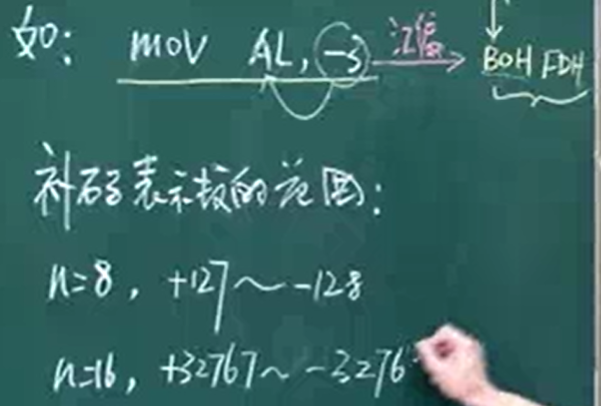 如: MOV AL, -3 汇编 B0H FDH
补码表示数的范围:
n=8, +127～-128
n=16, +32767～-3276